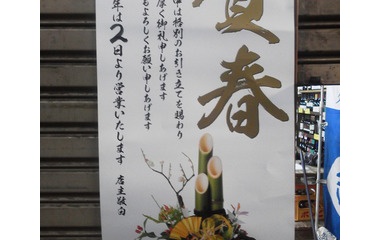 賀春
中は格別のお引き立てを賜わり
厚く御礼申しあげます
もよろしくお願い申しあげます
年は2日より営業いたします
店主敬白